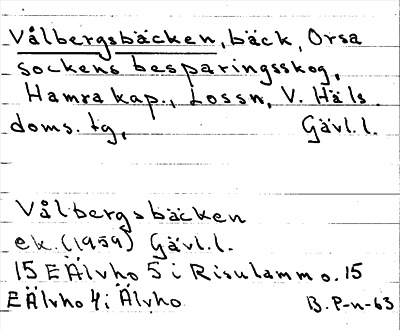 Vålbergsbäcken, bäck, Orsa
sockens besparingsskog,
Hamra kap., Lossn, V. Häls.
doms. tg, Gävl.l.
Vålbergsbäcken
ek. (1959) Gävl.l.
15 E Älvho 5 i Risulamm o. 15
E Älvho 4 i Älvho B. P-n-63